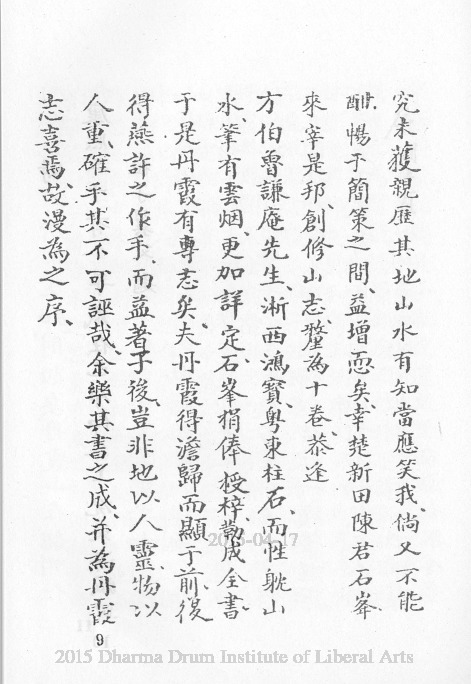 究未獲親歷其地山水有知當應笑我倘又不能
酣暢于簡策之間益增恧矣幸楚新田陳君石峯
來宰是邦創修山志釐為十卷恭逢
方伯魯謙庵先生淅西鴻寶粵東柱石而性躭山
水筆有雲烟更加詳定石峯捐俸授梓勒成全書
于是丹霞有專志矣夫丹霞得澹歸而顯于前復
得燕許之作手而益著于後豈非地以人靈物以
人重確乎其不可誣哉余樂其書之成并為丹霞
志喜焉故漫為之序
9
2015 Dharma Drum Institute of Liberal Arts